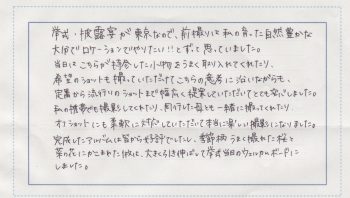 挙式・披露宴が東京なので、前撮りは私の育った自然豊かな
大田でロケーションでやりたい!!とずっと思っていました。
当日はこちらが持参した小物をうまく取り入れてくれたり、
希望のショットも撮っていただけてこちらの意見に沿いながらも、
定番から流行りのショットまで幅広く提案していただいてとても楽しめました。
私の携帯でも撮影してくれたり、同行した母とも一緒に撮ってくれたり
オフショットにも柔軟に対応していただいて本当に楽しい撮影になりました。
完成したアルバムは皆から好評でしたし、季節柄うまく撮れた桜と
菜の花にかこまれた1枚は、大きく引き伸ばして挙式当日のウェルカムボードに
しました。